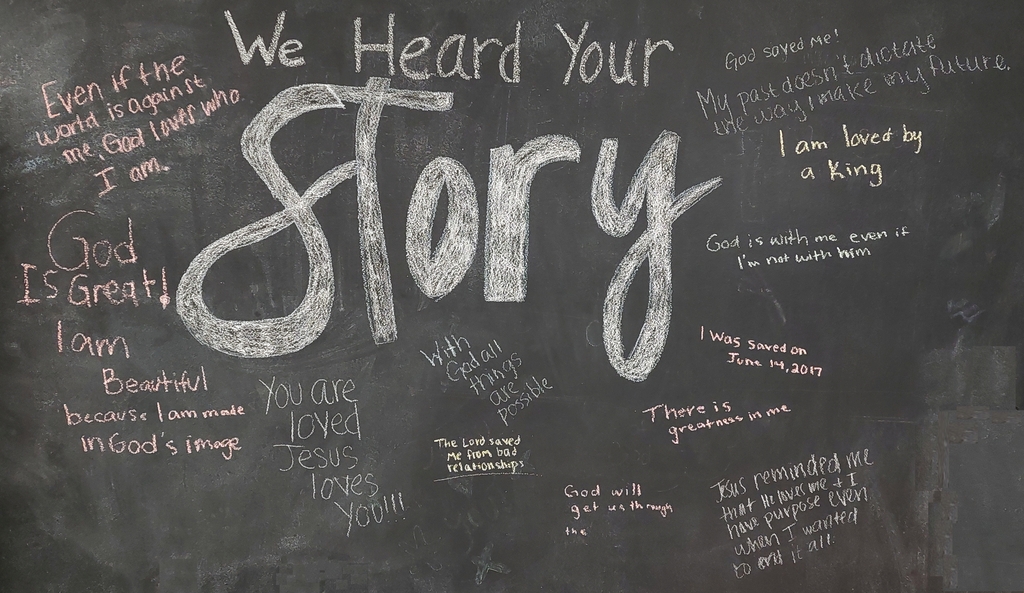 We Heard Your
Story
Even if the
world is against
me, God loves who
I am.
God
Is Great!
I am
Beautiful
because I am made
in God's image
You are
loved
Jesus
loves
You!!!
With
God all
things
are
possible
The Lord saved
Me from bad
relationships
God will
get us through
the
God saved me!
My past doesn't dictate
the way I make my future.
I am loved by
a King
God is with me even if
I'm not with him
I was saved on
June 14, 2017
There is
greatness in me
Jesus reminded me
that He loves me & I
have purpose even
when I wanted
to end it all.